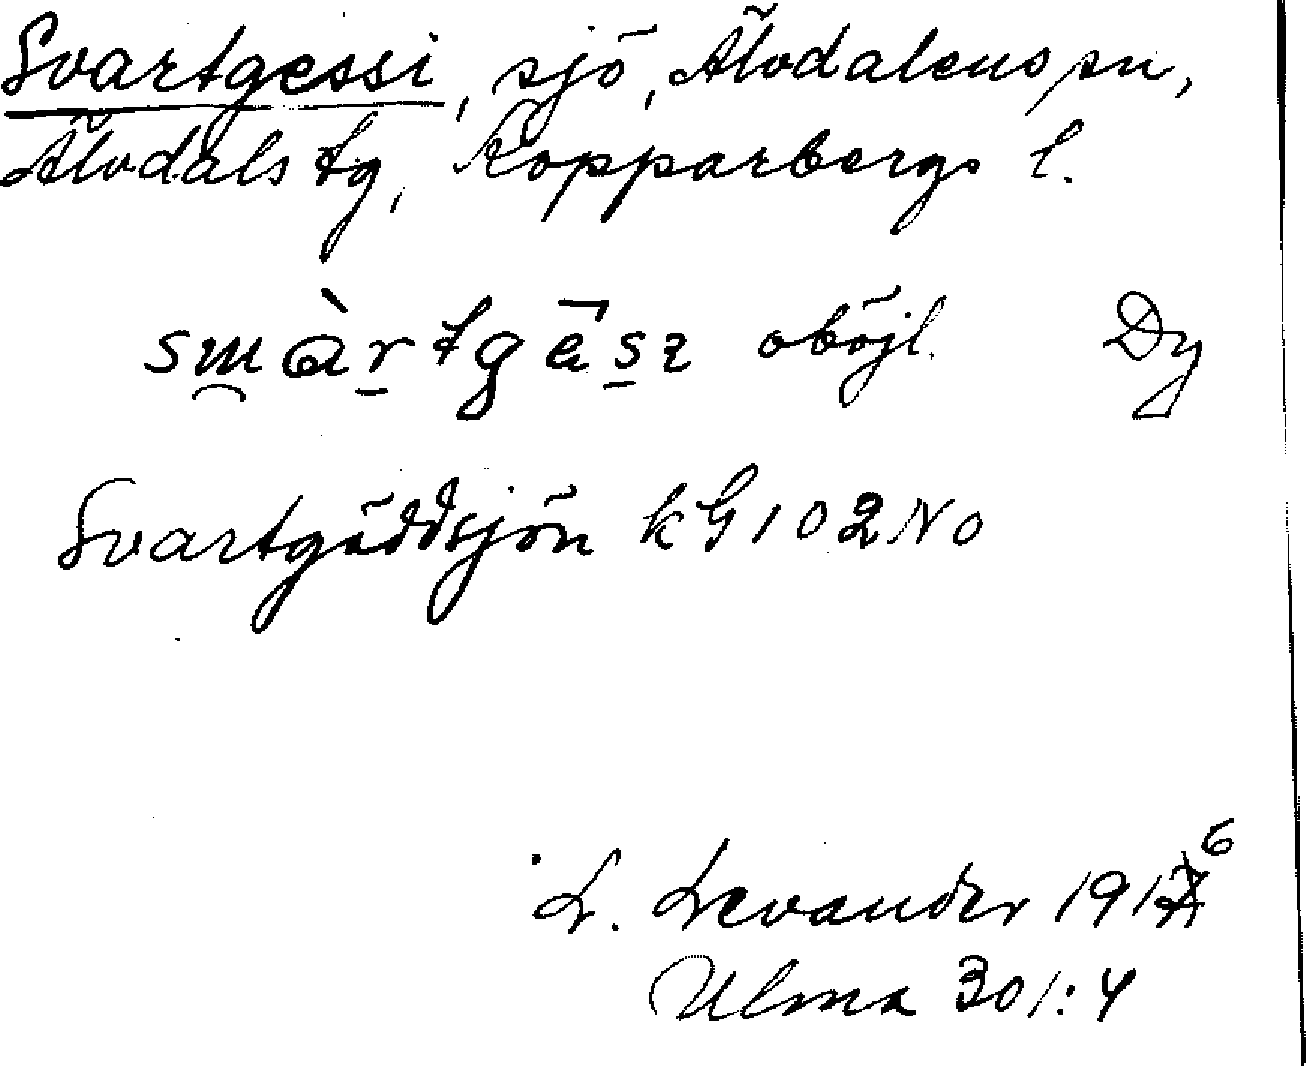 Svartgessi, sjö, Älvdalens sn,
Älvdals tg, Kopparbergs l.
oböjl. Dy
Svartgäddsjön kG 102 NO
L. Levander 1916
Ulma 301:4